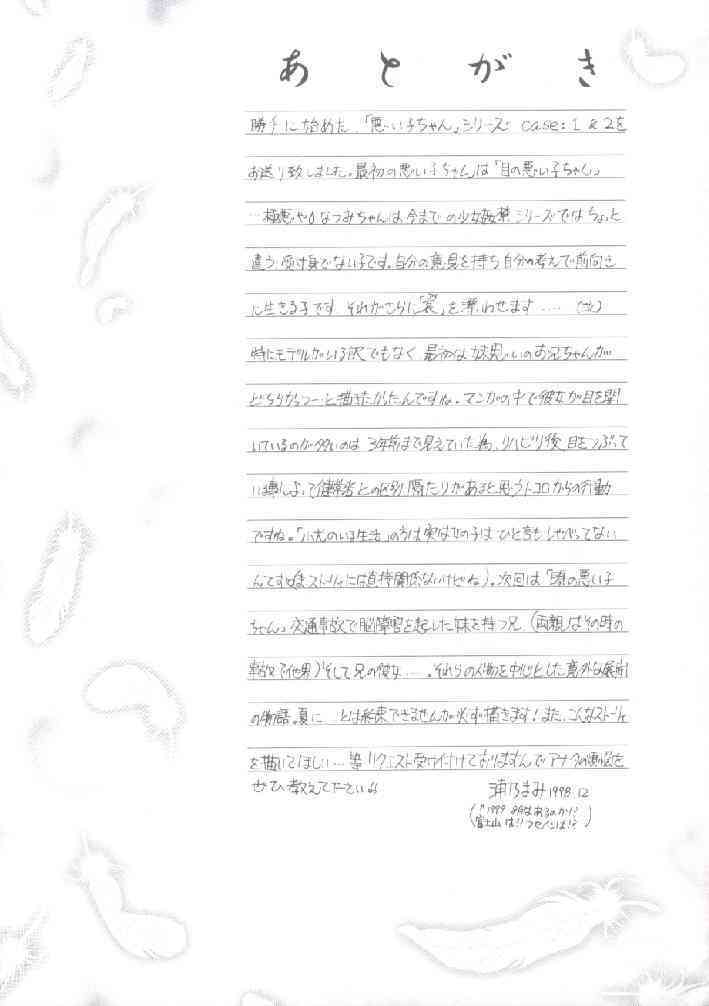 あとがき
勝手に始めた、「悪い子ちゃん」シリーズ case: 1 & 2を
お送り致しました。最初の悪い子ちゃんは「目の悪い子ちゃん」
なつみちゃんは、今までの少女 シリーズではちょっと
違う受け身でない子です。自分の意見を持ち自分の考えで前向き
に生きる子です。それがさらに「 」を漂わせます……
特にモデルがいる訳でもなく 最初は妹思いのお兄ちゃんが
と描きたかったんですね。マンガの中で彼女が目を開
いているのが多いのは 3年前まで見えていた為、リハビリ後 目をつぶって
健常者との区別、隔たりがあると思うトコロからの行動
ですね。「 のいる生活」の方は実は女の子は ひと言もしゃべってない
んです ストーリーには直接関係ないけどね)。次回は「頭の悪い子
ちゃん」交通事故で脳障害を起した妹を持つ兄、(両親はその時の
事故で他界)そして兄の彼女……。それらの人物を中心とした意外な展開
の物語。夏に… とは約束できませんが 必ず描きます!また、こんなストーリー
を描いてほしい…等リクエスト受け付けておりますんでアナタの をを
ぜひ教えて下さい。
1998.12
1999 はあるのか!?
富士山は!!